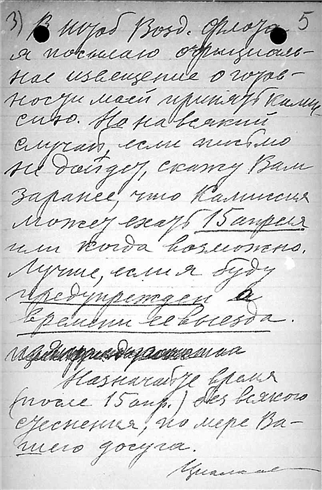 3) В штаб Возд. Флота 5
я посылаю официаль-
ное извещение о готов-
ности моей принять комис-
сию. Но на всякий
случай, если письмо
не дойдет, скажу Вам
заранее, что Комиссия
может ехать 15 апреля
или когда возможно.
Лучше, если я буду
предупрежден о
времени ее выезда.
Назначайте время
(после 15 апр.) без всякого
стеснения, по мере Ва-
шего досуга.
Циолков